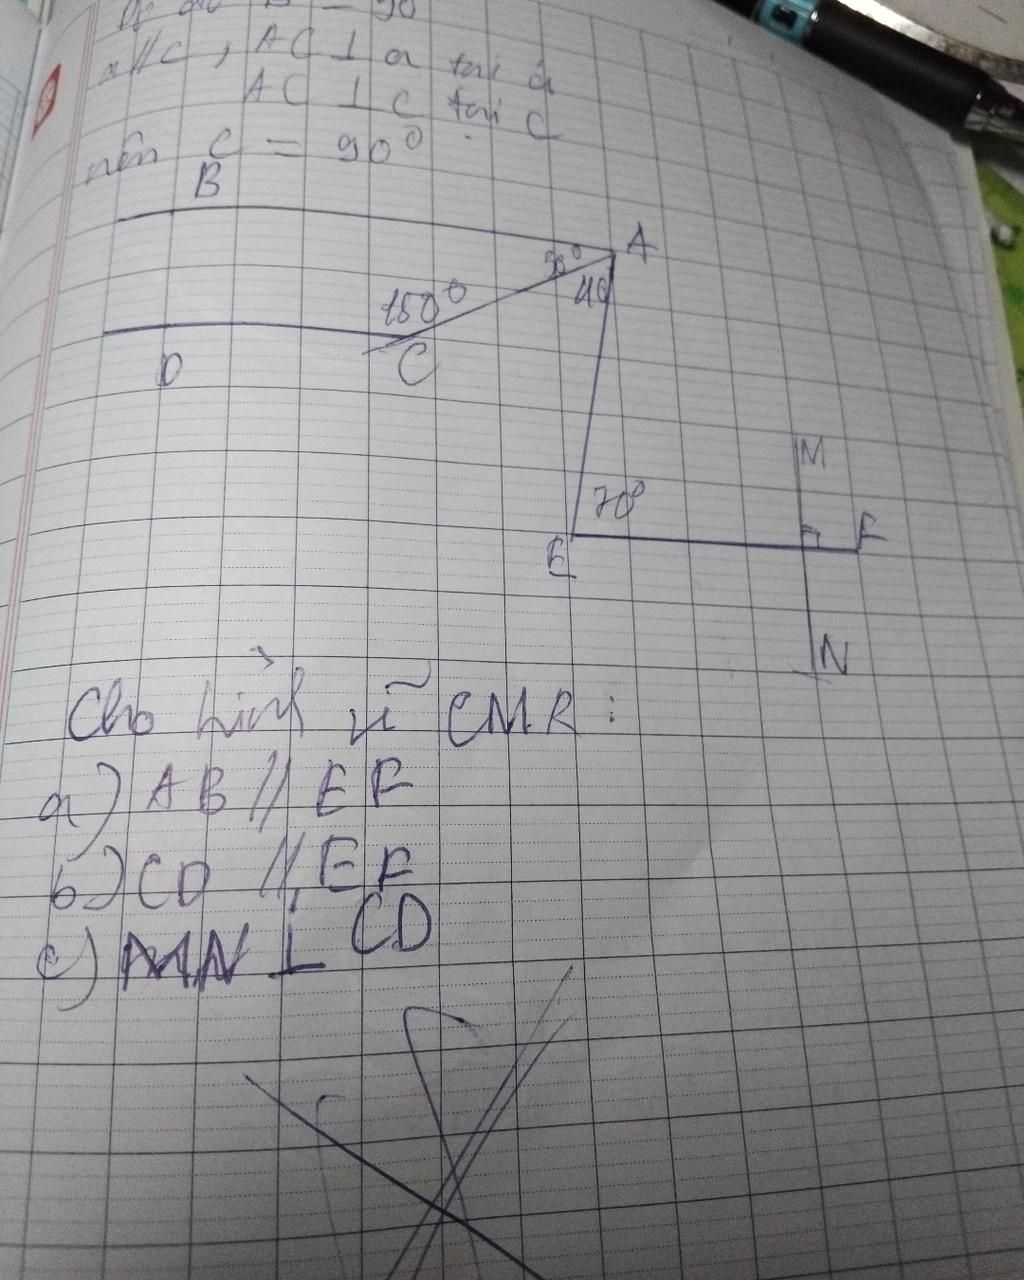 B = 90
a//C, AC ⊥ a tại a
AC ⊥ C tại C
nên C = 90⁰
B
A
30⁰
40
150⁰
D
C
M
70⁰
E
F
N
Cho hình vẽ CMR:
a) AB // EF
b) CD // EF
c) MN ⊥ CD